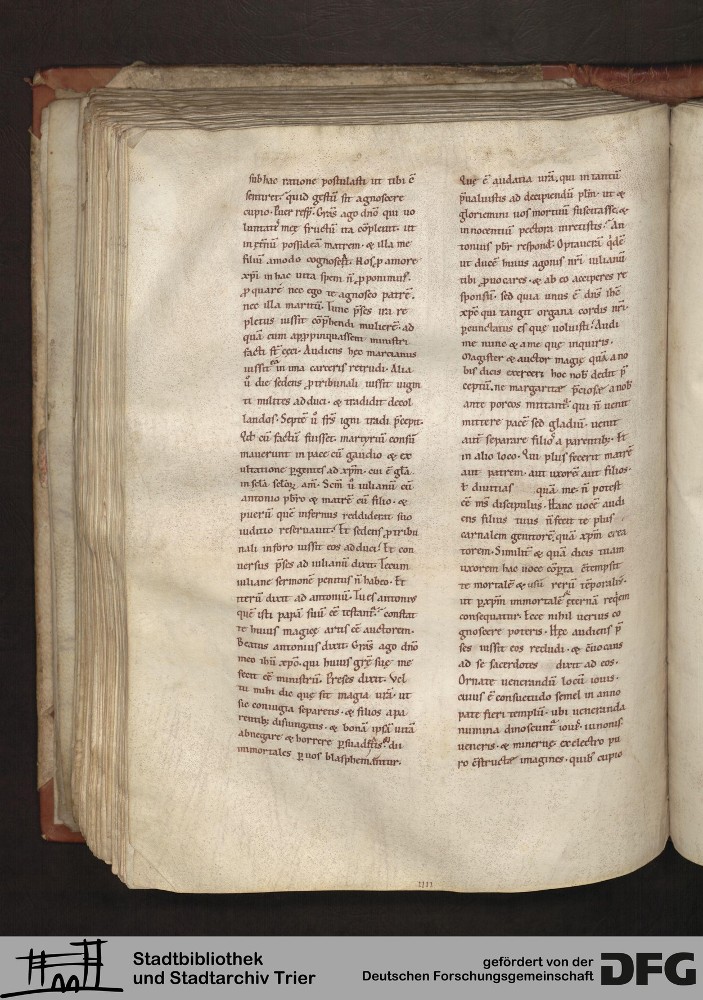 sub hac ratione postulasti ut tibi c̄
sentiret. quid gestū sit agnoscere
cupio. Puer resp̄. Gr̄as ago dn̄o qui uo
luntatē meę fructū ita cōpleuit. ut
in et̄nū possideā matrem. & illa me
filiū amodo cognoscat. Hos ꝓ amore
xp̄i in hac uita spem n̄ ꝓponimus.
ꝓ quare nec ego te agnosco patrē.
nec illa maritū. Tunc p̄ses ira re
pletus iussit cōp̄hendi mulierē. ad
quā cum appropinquassent ministri
facti st̄ cęci. Audiens hęc marcianus
iussit eā in ima carceris retrudi. Alia
ū die sedens ꝓ tribunali iussit uigin
ti milites adduci. & tradidit decol
landos. Septē ū fr̄s igni tradi p̄cepit.
Qd̄ cū factū fuisset. martyriū consū
mauerunt in pace cū gaudio & ex
ultatione pergentes ad xp̄m. cui ē gl̄a
in scl̄a scl̄oꝝ. am̄. Scm̄ ū iulianū cū
antonio pbr̄o & matrē cū filio. &
puerū quē infernus reddiderat suo
iuditio reseruauit. Et sedens ꝓ tribu
nali in foro iussit eos adduci. Et con
uersus p̄ses ad iulianū dixit. Tecum
iuliane sermonē penitus n̄ habeo. Et
iterū dixit ad antoniū. Tu es antonius
quē isti papā suū eē testant̄. constat
te huius magicę artis eē auctorem.
Beatus antonius dixit. Gr̄as ago dn̄o
meo ih̄u xp̄o. qui huius gr̄ę suę me
fecit eē ministrū. Preses dixit. Vel
tu mihi dic quę sit magia ur̄a. ut
sic coniugia separetis. & filios a pa
rentibꝫ disiungatis. & bonā ipsā uitā
abnegare & horrere ꝑsuadeatis. qd̄ dii
immortales ꝑ uos blasphemantur.
Quę ē audatia ur̄a. qui in tantū
p̄ualuistis ad decipiendū plm̄. ut &
gloriemini uos mortuū suscitasse. &
innocentiū pectora irretistis. An
tonius pbr̄ respond̄. Optauerā qd̄ē
ut ducē huius agonis nr̄i iulianū
tibi ꝓuocares. & ab eo acciperes re
sponsū. sed quia unus ē dn̄s ih̄c
xp̄c qui tangit organa cordis nr̄i.
percunctatus es que uoluisti. Audi
me nunc & a me quę inquiris.
Magister & auctor magię quā a no
bis dicis exerceri hoc nob̄ dedit p̄
ceptū. ne margaritae p̄ciosae a nob̄
ante porcos mittant̄. qui n̄ uenit
mittere pacē sed gladiū. uenit
aut̄ separare filios a parentibꝫ. Et
in alio loco. Qui plus fecerit matrē
aut patrem. aut uxorē aut filios.
ł diuitias quā me. n̄ potest
eē ms̄ discipulus. Hanc uocē audi
ens filius tuus n̄ fecit te plus
carnalem genitorē. quā xp̄m crea
torem. Similit̄ & quā dicis tuam
uxorem hac uoce cōperta cōtempsit
te mortalē & usū rerū tēporaliū.
ut ꝑ xp̄m immortalē & eternā reqem
consequatur. Ecce nihil uerius co
gnoscere poteris. Hęc audiens p̄
ses iussit eos recludi. & cōuocans
ad se sacerdotes dixit ad eos.
Ornate uenerandū locū iouis.
cuius ē consuetudo semel in anno
pate fieri templū. ubi ueneranda
numina dinoscunt̄ iouis. iunonis
ueneris. & mineruę ex electro pu
ro cōstructae imagines. quibꝰ cupio
IIII
Stadtbibliothek
und Stadtarchiv Trier
gefördert von der
Deutschen Forschungsgemeinschaft
DFG